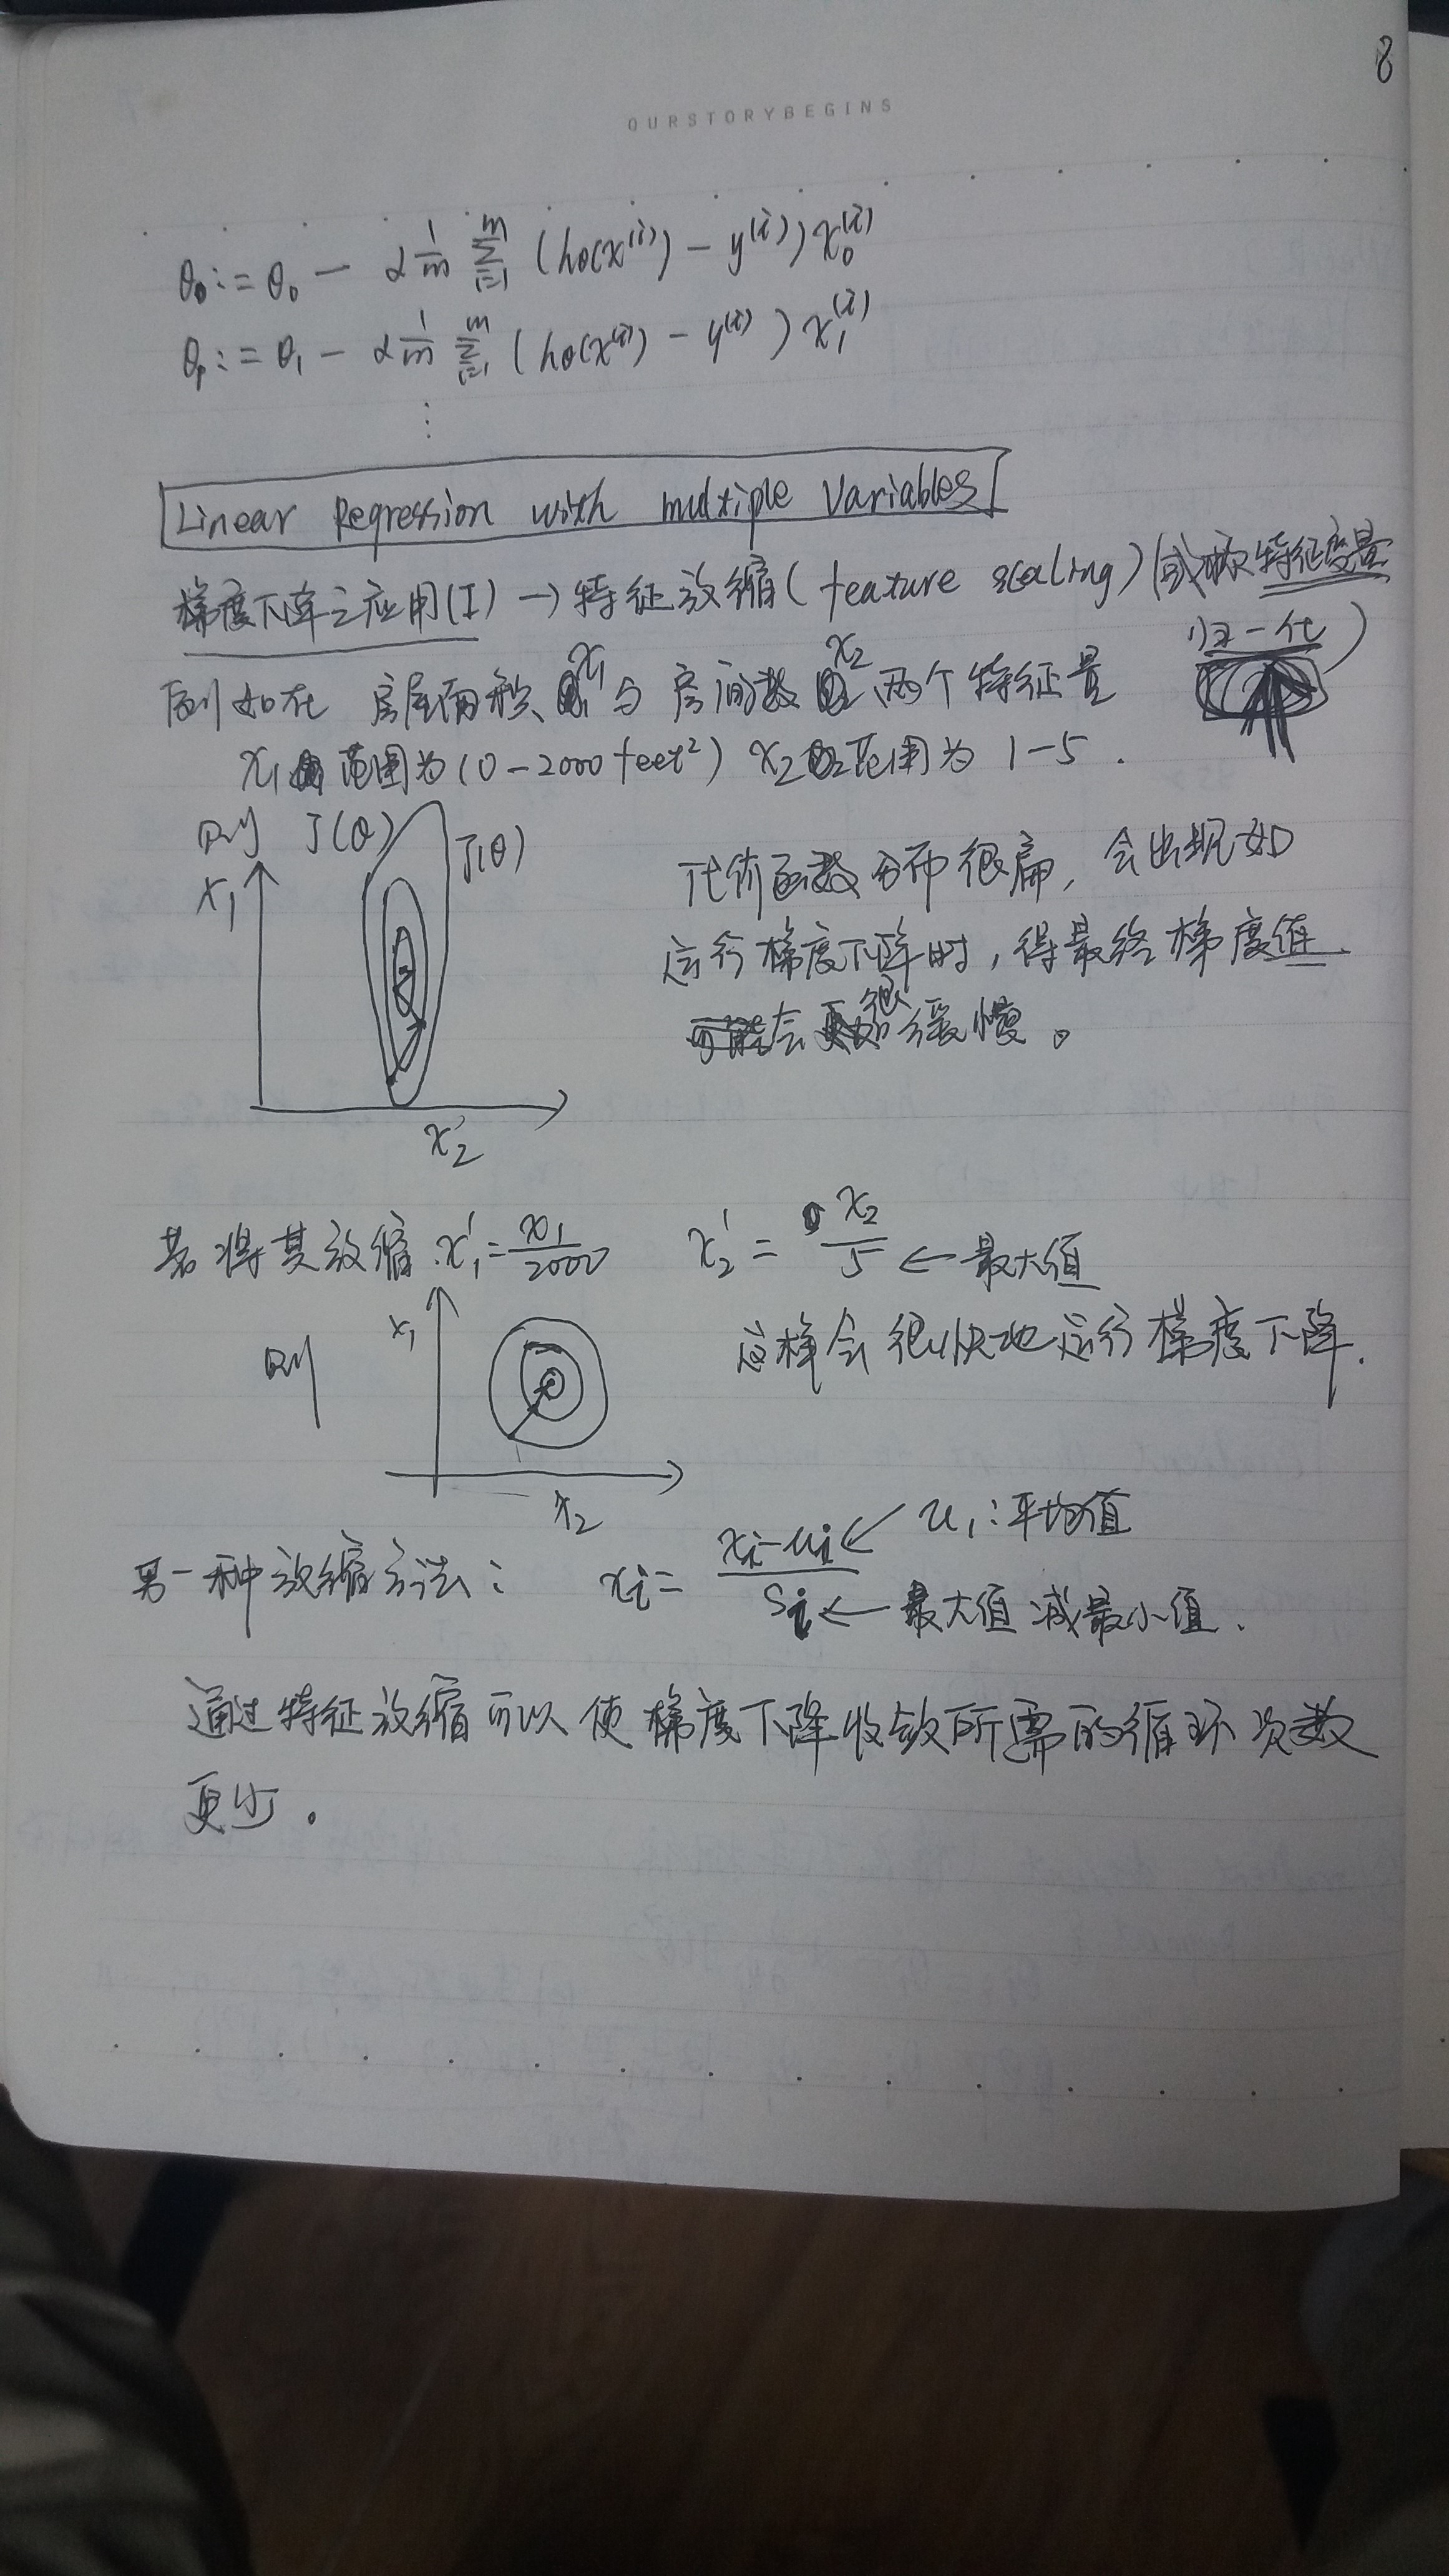 8
OURSTORYBEGINS
θ₀ := θ₀ − α 1/m Σᵢ₌₁ᵐ (hθ(x⁽ⁱ⁾) − y⁽ⁱ⁾) x₀⁽ⁱ⁾
θ₁ := θ₁ − α 1/m Σᵢ₌₁ᵐ (hθ(x⁽ⁱ⁾) − y⁽ⁱ⁾) x₁⁽ⁱ⁾
⋮
Linear Regression with multiple Variables
梯度下降之应用(I) → 特征放缩(feature scaling)(或称特征变量
归一化)
例如在 房屋面积 x₁ 与 房间数 x₂ 两个特征量
x₁ 范围为(0-2000 feet²) x₂ 范围为 1-5.
则 J(θ) J(θ)
x₁
x₂
代价函数分布很扁, 会出现如
运行梯度下降时, 得最终梯度值
会很缓慢。
若将其放缩 x₁' = x₁/2000 x₂' = x₂/5 ← 最大值
则 x₁
x₂
这样会很快地运行梯度下降.
另一种放缩方法: xᵢ = (xᵢ-uᵢ)/sᵢ ← u₁:平均值
← 最大值减最小值.
通过特征放缩可以使梯度下降收敛所需的循环次数
更少。